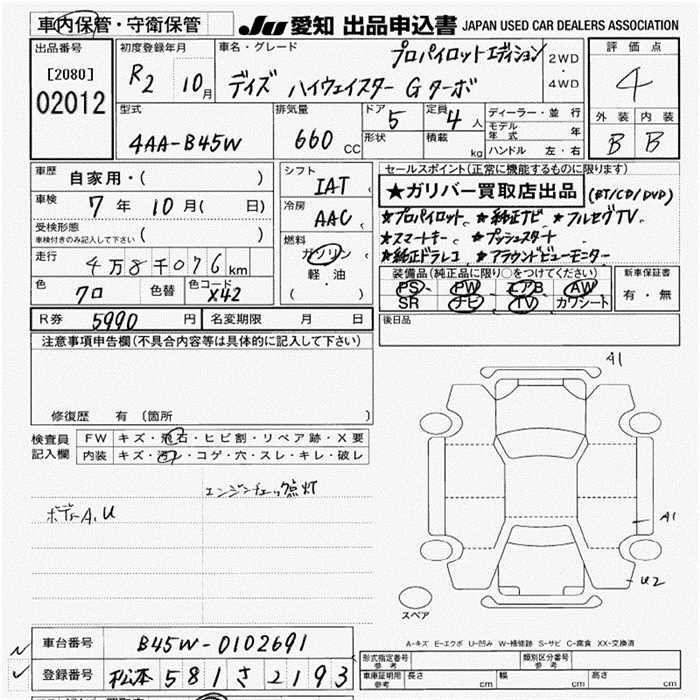 車内保管・守衛保管
JU 愛知 出品申込書 JAPAN USED CAR DEALERS ASSOCIATION
出品番号
[2080]
02012
初度登録年月
R2 10月
車名・グレード
プロパイロットエディション
デイズ ハイウェイスター Gターボ
2WD
・
4WD
評価点
4
外装 内装
B B
型式
4AA-B45W
排気量
660 CC
ドア 5
形状
定員 4人
積載 kg
ディーラー・並行
モデル年式 年
ハンドル 左・右
車歴 自家用・( )
車検 7年 10月( 日)
受検形態
車検付きのみ記入して下さい ( )
走行 4万8千076km
色 クロ 色替 色コード X42
シフト IAT
冷房 AAC
燃料 ガソリン
軽・油
( )
セールスポイント(正常に機能するものに限ります)
★ガリバー買取店出品 (BT/CD/DVD)
★プロパイロット。★純正ナビ ★フルセグTV、
★スマートキー。★プッシュスタート
★純正ドラレコ ★アラウンドビューモニター
装備品(純正品に限り○をつけてください)
PS PW エアB AW
SR ナビ TV カワシート
新車保証書
有・無
R券 5990円 名変期限 月 日
後日品
注意事項申告欄(不具合内容等は具体的に記入して下さい)
修復歴 有 (箇所 )
検査員記入欄
FW キズ・飛石・ヒビ割・リペア跡・X要
内装 キズ・汚レ・コゲ・穴・スレ・キレ・破レ
エンジンチェック点灯
ボデーA、U
A1
A1
U2
スペア
A-キズ E-エクボ U-凹み W-補修跡 S-サビ C-腐食 XX-交換済
車台番号 B45W-0102691
登録番号 松本 581 さ 2193
形式指定番号 参考
類別区分番号 参考
車庫証明用 参考 長さ cm 幅 cm 高さ cm